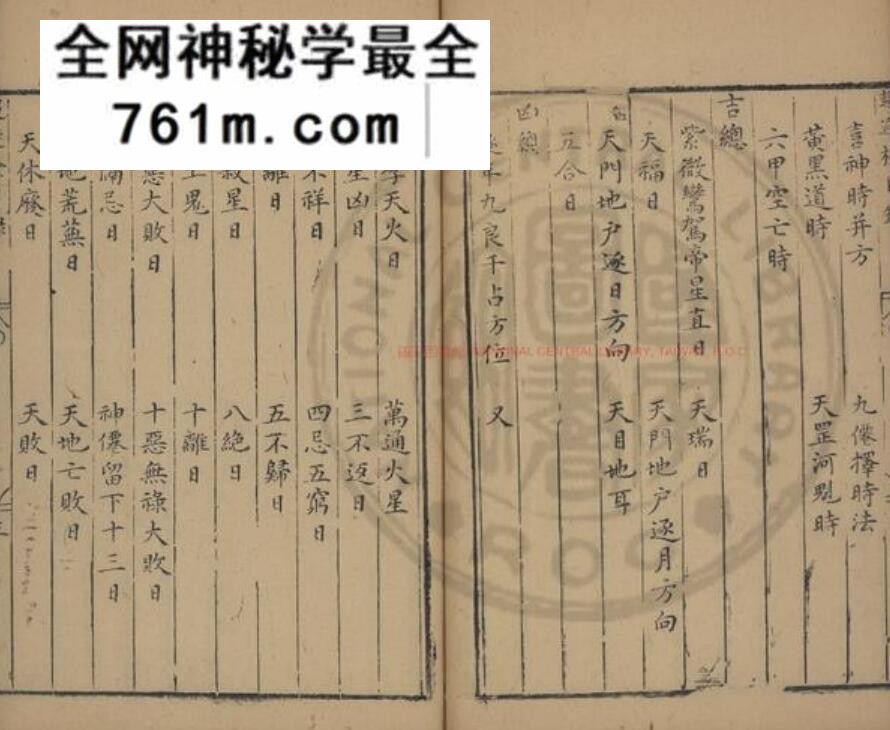 全网神秘学最全
761m.com
喜神時并方
九僊擇時法
黃黑道時
天罡河魁時
六甲空亡時
吉總
紫微鸞駕帝星直日
天瑞日
天福日
天門地户逐月方向
天門地户逐日方向
天目地耳
五合日
凶總
年九良千占方位 又
天火日
萬通火星
星凶日
三不返日
不祥日
四忌五窮日
離日
五不歸日
殺星日
八絶日
上鬼日
十離日
惡大敗日
十惡無禄大敗日
忌日
神僊留下十三日
地荒蕪日
天地亡敗日
天休廢日
天敗日
NATIONAL CENTRAL LIBRARY, TAIWAN, R.O.C.